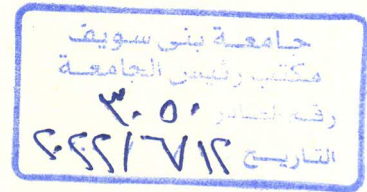 جامعة بنى سويف
مكتب رئيس الجامعة
رقم الصادر ٣٠٥٠
التاريخ ٢٠٢٢/٦/١٢